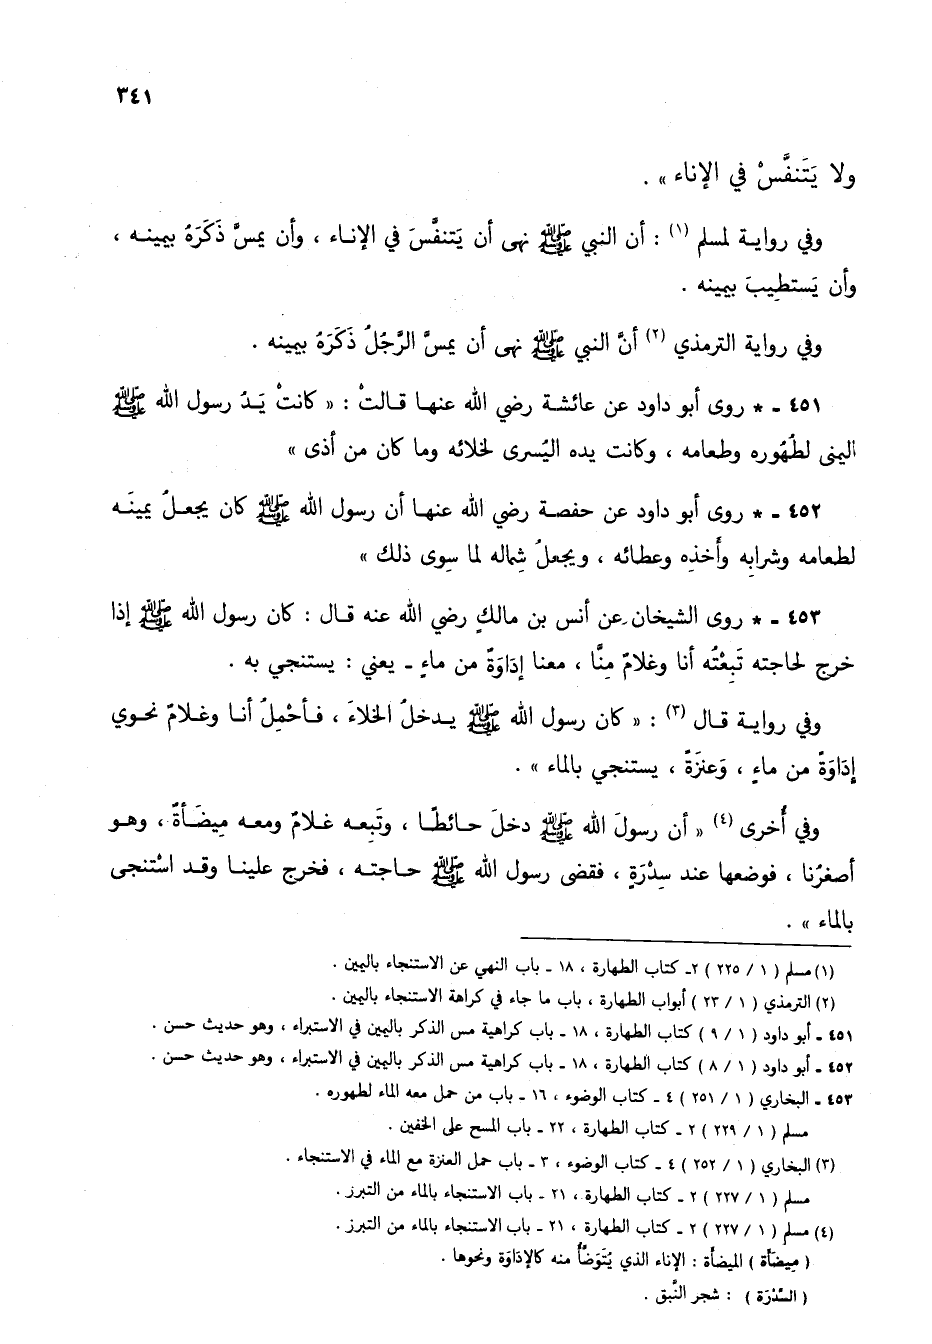 ٣٤١
ولا يَتَنفَّسْ في الإناء » .
وفي رواية لمسلم (١) : أن النبي ﷺ نهى أن يَتنفَّسَ في الإناء ، وأن يمسَّ ذَكَرَهُ بيمينه ،
وأن يَستطِيبَ بيمينه .
وفي رواية الترمذي (٢) أنَّ النبي ﷺ نهى أن يمسَّ الرَّجُلُ ذَكَرَهُ بيمينه .
٤٥١ ـ * روى أبو داود عن عائشة رضي الله عنها قالتْ : « كانتْ يَدُ رسول الله ﷺ
اليمنى لطُهُوره وطعامه ، وكانت يده اليُسرى لخلائه وما كان من أذى »
٤٥٢ ـ * روى أبو داود عن حفصة رضي الله عنها أن رسول الله ﷺ كان يجعلُ يمينَه
لطعامه وشرابِه وأَخذِه وعطائه ، ويجعلُ شِماله لما سِوى ذلك »
٤٥٣ ـ * روى الشيخان عن أنس بن مالكٍ رضي الله عنه قال : كان رسول الله ﷺ إذا
خرج لحاجته تَبِعْتُه أنا وغلامٌ مِنَّا ، معنا إدَاوَةٌ من ماءٍ ـ يعني : يستنجي به .
وفي رواية قال (٣) : « كان رسول الله ﷺ يدخلُ الخلاءَ ، فأحْمِلُ أنا وغلامٌ نحوي
إدَاوَةً من ماءٍ ، وَعنزَةً ، يستنجي بالماء » .
وفي أُخرى (٤) « أن رسولَ الله ﷺ دخلَ حائطًا ، وتَبِعه غلامٌ ومعه مِيضَأةٌ ، وهو
أصغرُنا ، فوضعها عند سِدْرَةٍ ، فقضى رسول الله ﷺ حاجته ، فخرج علينا وقد اسْتنجى
بالماء » .
(١) مسلم ( ١ / ٢٢٥ ) ٢ـ كتاب الطهارة ، ١٨ ـ باب النهي عن الاستنجاء باليمين .
(٢) الترمذي ( ١ / ٢٣ ) أبواب الطهارة ، باب ما جاء في كراهة الاستنجاء باليمين .
٤٥١ ـ أبو داود ( ١ / ٩ ) كتاب الطهارة ، ١٨ ـ باب كراهية مس الذكر باليمين في الاستبراء ، وهو حديث حسن .
٤٥٢ ـ أبو داود ( ١ / ٨ ) كتاب الطهارة ، ١٨ ـ باب كراهية مس الذكر باليمين في الاستبراء ، وهو حديث حسن .
٤٥٣ ـ البخاري ( ١ / ٢٥١ ) ٤ ـ كتاب الوضوء ، ١٦ ـ باب من حمل معه الماء لطهوره .
مسلم ( ١ / ٢٢٩ ) ٢ ـ كتاب الطهارة ، ٢٢ ـ باب المسح على الخفين .
(٣) البخاري ( ١ / ٢٥٢ ) ٤ ـ كتاب الوضوء ، ٣ ـ باب حمل العنزة مع الماء في الاستنجاء .
مسلم ( ١ / ٢٢٧ ) ٢ ـ كتاب الطهارة ، ٢١ ـ باب الاستنجاء بالماء من التبرز .
(٤) مسلم ( ١ / ٢٢٧ ) ٢ ـ كتاب الطهارة ، ٢١ ـ باب الاستنجاء بالماء من التبرز .
( مِيضَأة ) الميضأة : الإناء الذي يُتَوَضَّأُ منه كالإدَاوَة ونحوها .
( السِّدْرَة ) : شجر النَّبق .